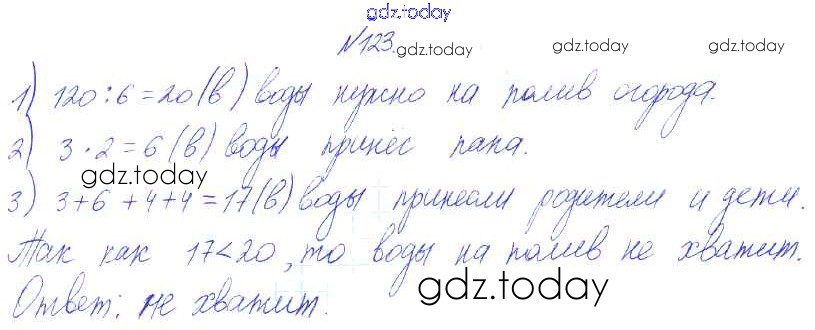 gdz.today
№123. gdz.today gdz.today gdz.today
1) 120:6=20(в) воды нужно на полив огорода.
2) 3·2=6(в) воды принёс папа.
gdz.today gdz.today
3) 3+6+4+4=17(в) воды принесли родители и дети.
Так как 17<20, то воды на полив не хватит.
Ответ: не хватит. gdz.today